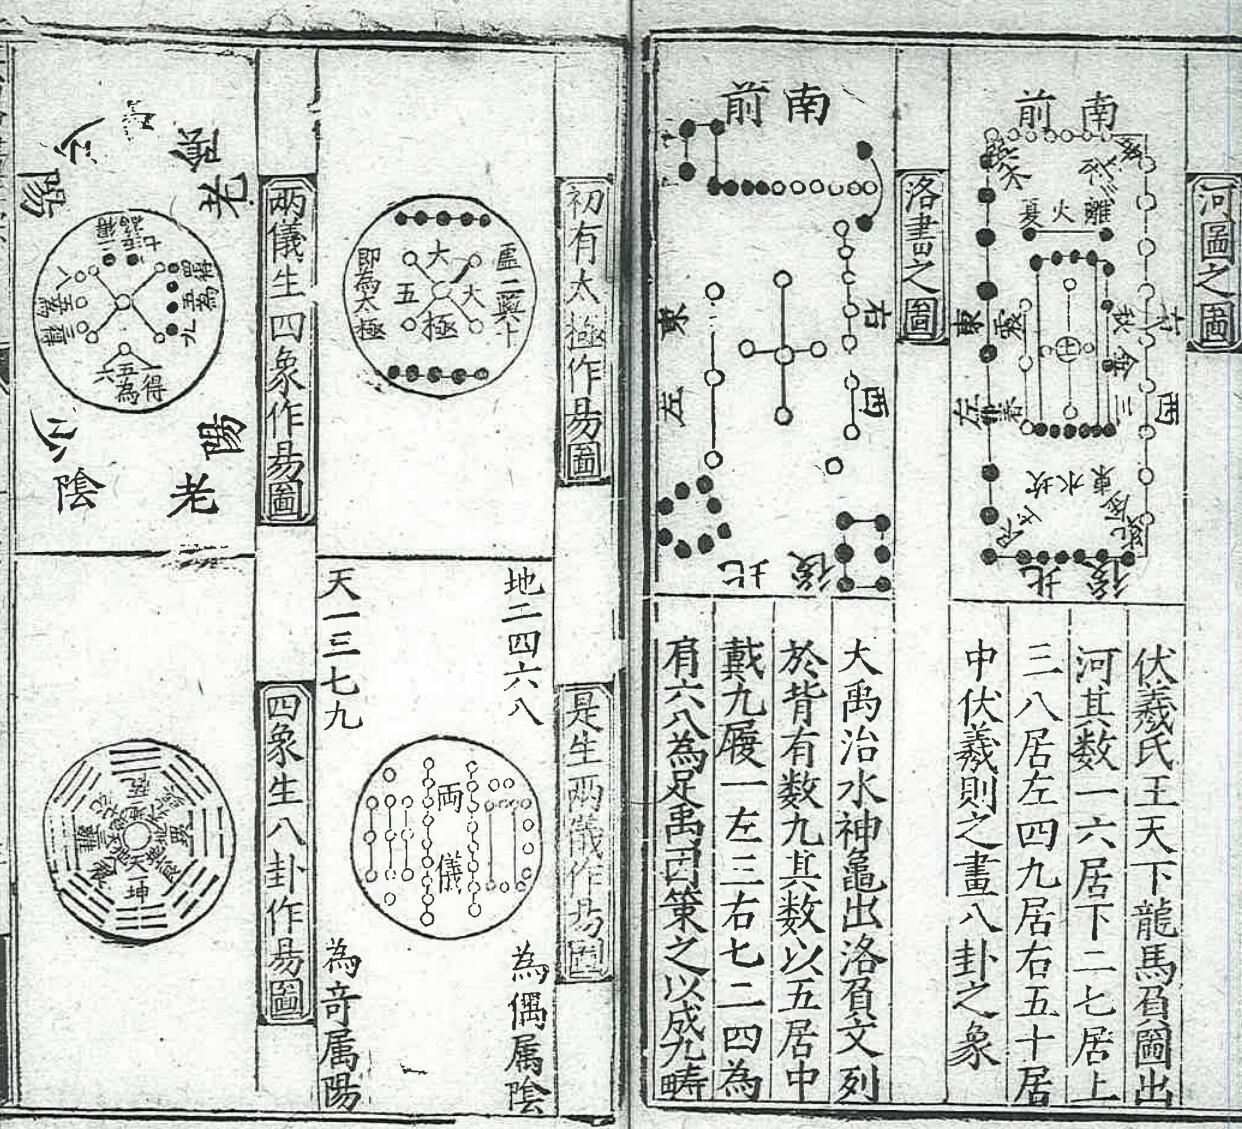 河圖之圖
南前
離火夏
伏羲氏王天下龍馬負圖出
河其数一六居下二七居上
三八居左四九居右五十居
中伏羲則之畫八卦之象
後北
東
左
西
洛書之圖
南前
東
左
右
西
後北
大禹治水神龜出洛負文列
於背有数九其数以五居中
戴九履一左三右七二四為
肩六八為足禹因第之以成九疇
初有太極作易圖
大五大極
即為太極
是生兩儀作易圖
地二四六八
為偶属陰
両儀
天一三七九
為奇属陽
兩儀生四象作易圖
老陰
少陽
老陽
少陰
得五為六
四象生八卦作易圖
坤